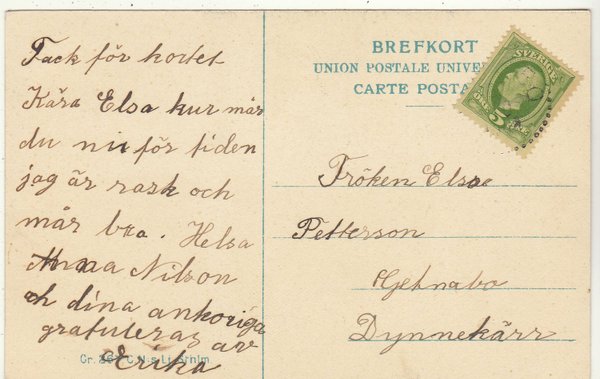 Tack för kortet
Kära Elsa kur mår
du nu för tiden
jag är rask och
mår bra. Helsa
Anna Nilson
och dina anhöriga
gratuleras av
Erika
BREFKORT
UNION POSTALE UNIVE
CARTE POSTA
SVERIGE
5
Fröken Elsa
Petterson
Dynnekärr